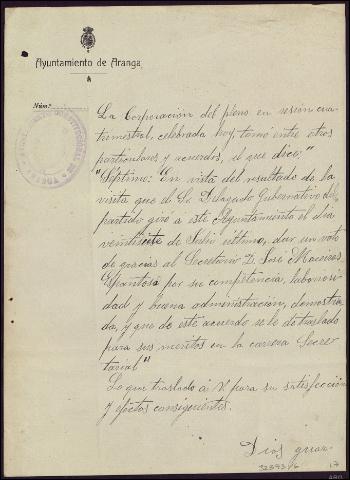 Ayuntamiento de Aranga
Núm.
La Corporación del pleno en sesión cua-
trimestral, celebrada hoy, tomó entre otros
particulares y acuerdos, el que dice:"
"Septimo: En vista del resultado de la
visita que el Sr. Delegado Gubernativo del
partido giró a este Ayuntamiento el dia
veintisiete de Julio último, dar un voto
de gracias al Secretario D. José Maceiras
Espantoso por su competencia, laboriosi-
dad y buena administración, demostra-
da, y que de este acuerdo se le de traslado
para sus meritos en la carrera Secre-
tarial"
Lo que traslado a V para su satisfacción
y efectos consiguientes.
Dios guar-
32393/6
17